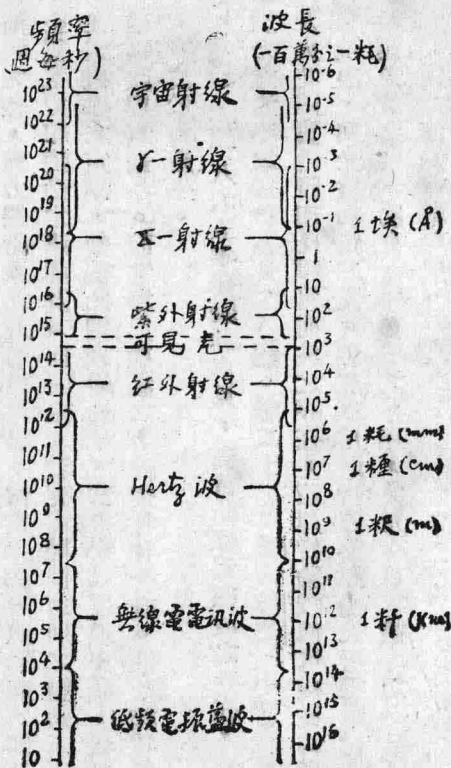 頻率
(週每秒)
波長
(一百萬分之一粍)
10²³
10²²
10²¹
10²⁰
10¹⁹
10¹⁸
10¹⁷
10¹⁶
10¹⁵
10¹⁴
10¹³
10¹²
10¹¹
10¹⁰
10⁹
10⁸
10⁷
10⁶
10⁵
10⁴
10³
10²
10
宇宙射線
γ-射線
X-射線
紫外射線
可見光
紅外射線
Hertz 波
無線電電訊波
低頻電振盪波
10⁻⁶
10⁻⁵
10⁻⁴
10⁻³
10⁻²
10⁻¹
1
10
10²
10³
10⁴
10⁵
10⁶
10⁷
10⁸
10⁹
10¹⁰
10¹¹
10¹²
10¹³
10¹⁴
10¹⁵
10¹⁶
1埃 (Å)
1粍 (mm)
1糎 (cm)
1粎 (m)
1粁 (Km)